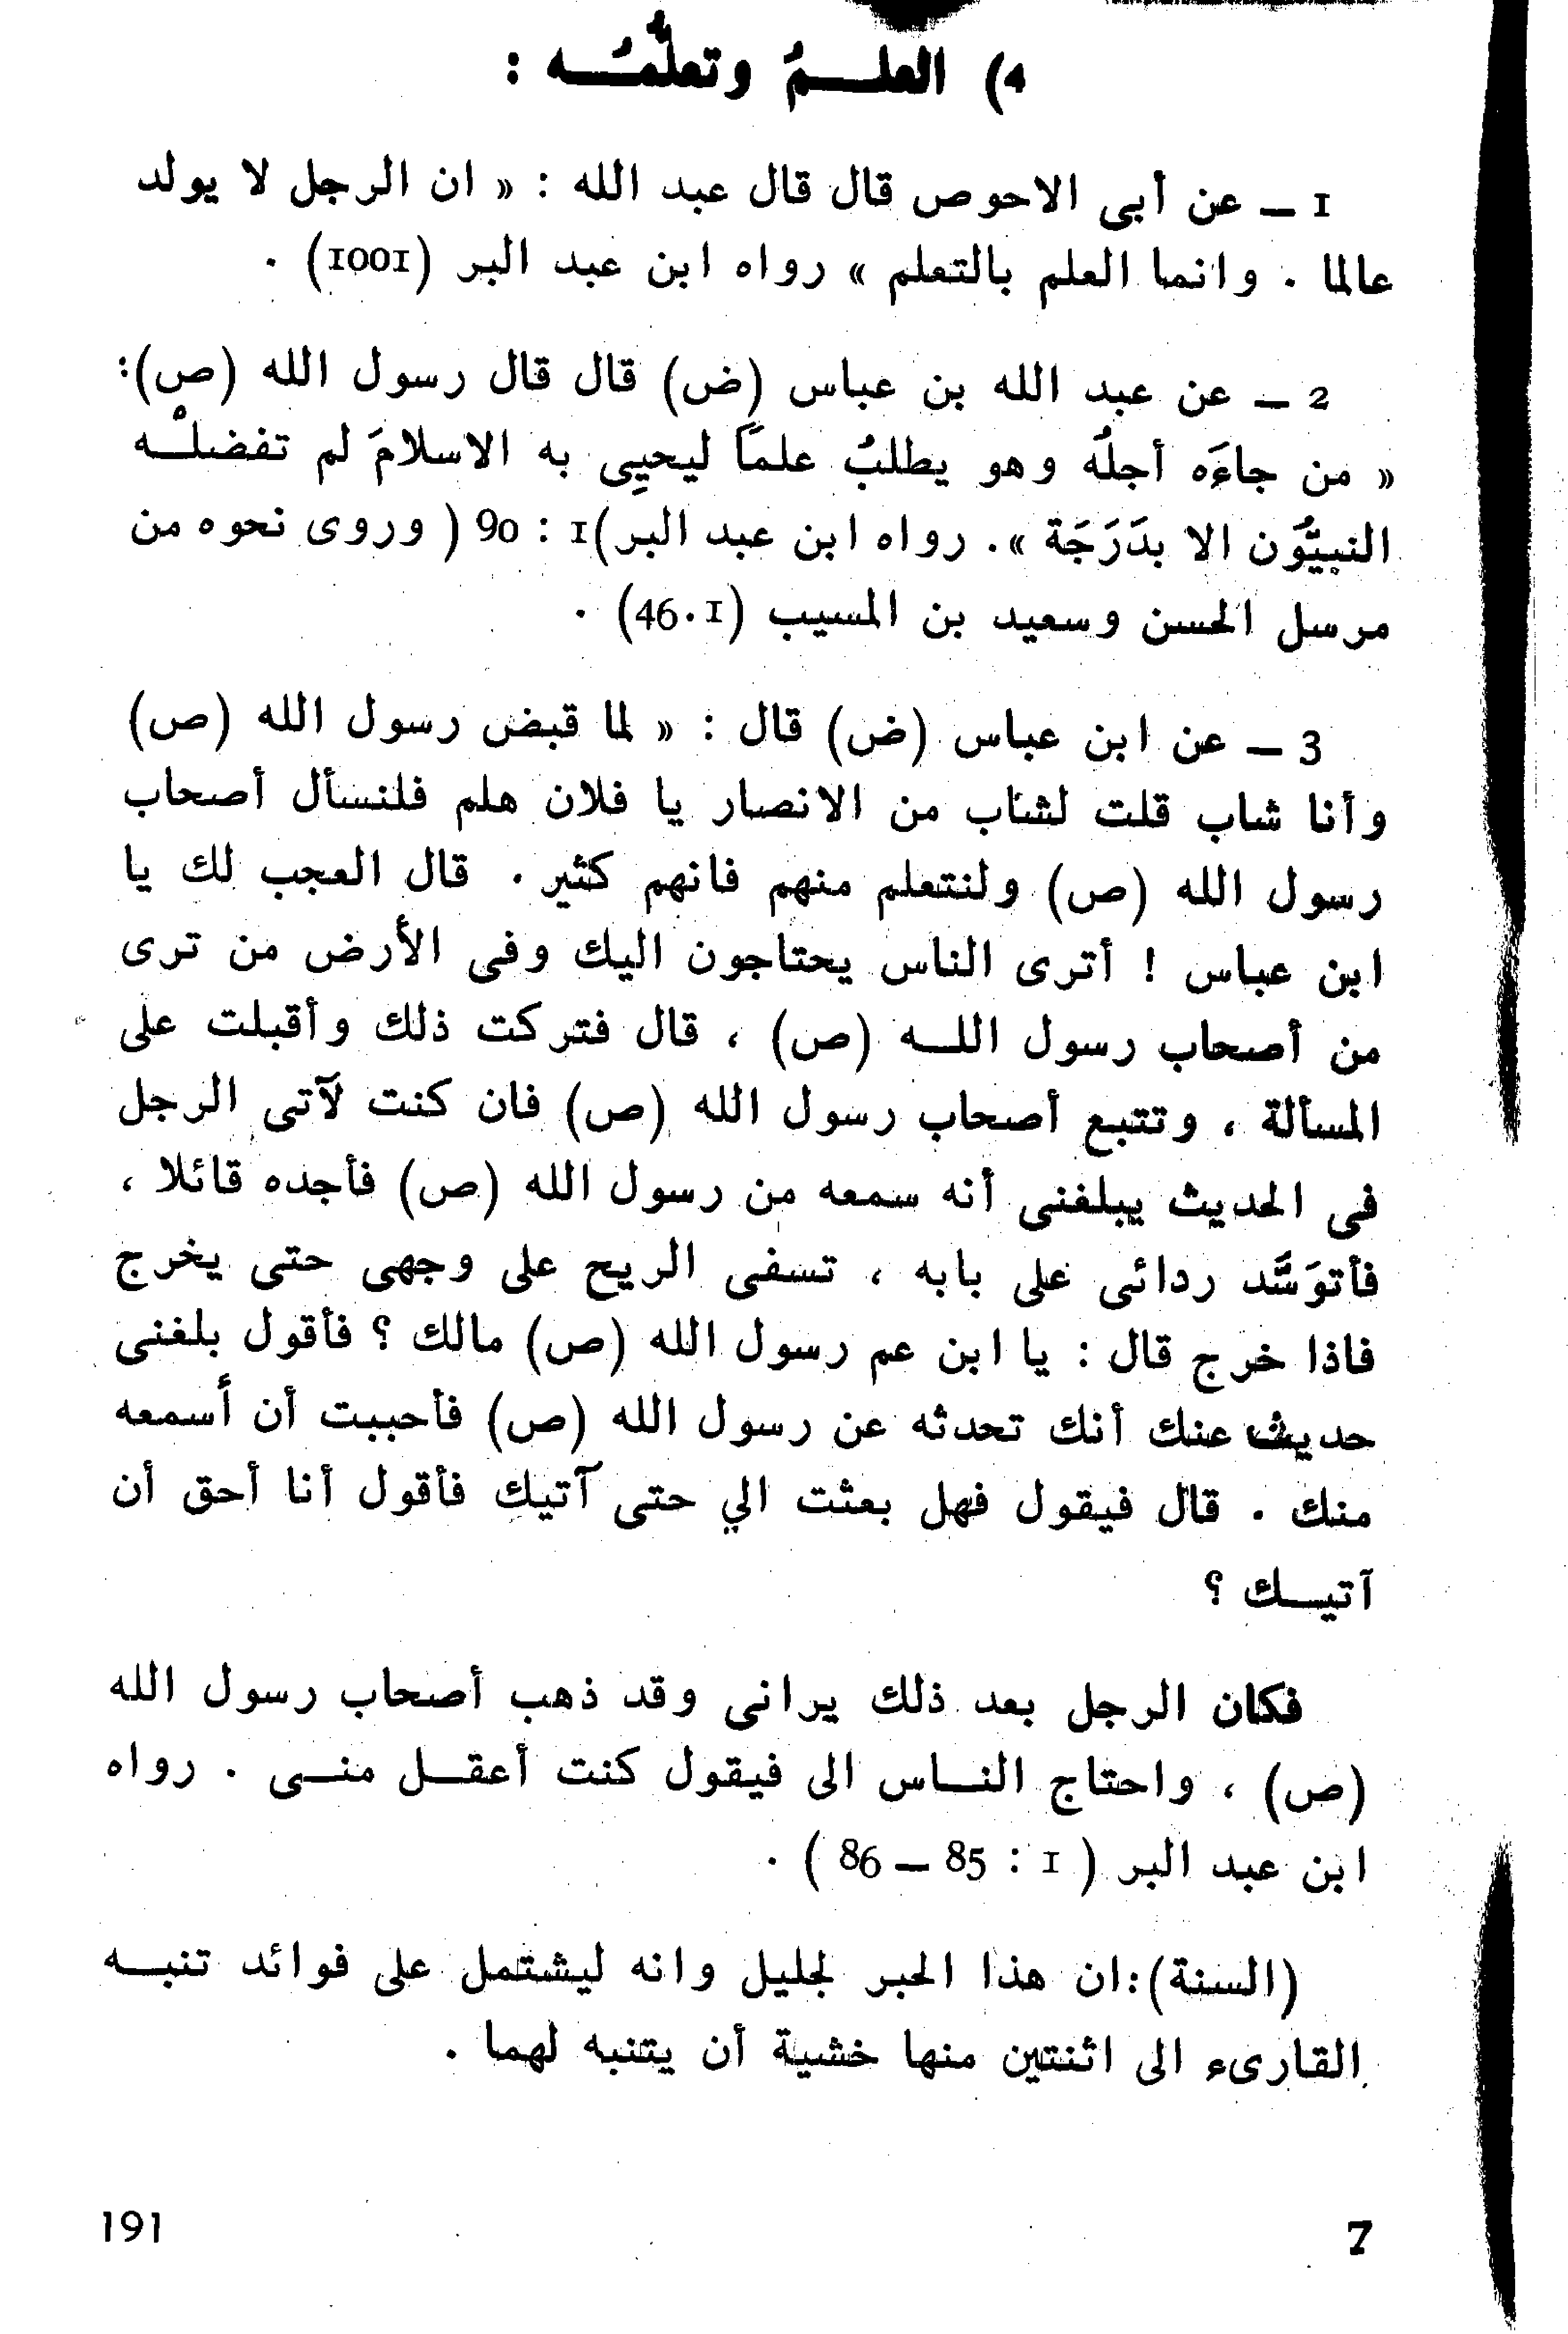 4) العلـــمُ وتعلُّمُـــه :
1 — عن أبى الاحوص قال قال عبد الله : « ان الرجل لا يولد
عالما . وانما العلم بالتعلم » رواه ابن عبد البر (1001) .
2 — عن عبد الله بن عباس (ض) قال قال رسول الله (ص):
« من جاءَه أجلُه وهو يطلبُ علمًا ليحيِى به الاسلامَ لم تفضلْـه
النبيُّون الا بدَرَجَة ». رواه ابن عبد البر)1 : 90 ( وروى نحوه من
مرسل الحسن وسعيد بن المسيب (46.1) .
3 — عن ابن عباس (ض) قال : « لما قبض رسول الله (ص)
وأنا شاب قلت لشاب من الانصار يا فلان هلم فلنسأل أصحاب
رسول الله (ص) ولنتعلم منهم فانهم كثير . قال العجب لك يا
ابن عباس ! أترى الناس يحتاجون اليك وفى الأرض من ترى
من أصحاب رسول اللـه (ص) ، قال فتركت ذلك وأقبلت على
المسألة ، وتتبع أصحاب رسول الله (ص) فان كنت لآتى الرجل
فى الحديث يبلغنى أنه سمعه من رسول الله (ص) فأجده قائلا ،
فأتوَسَّد ردائى على بابه ، تسفى الريح على وجهى حتى يخرج
فاذا خرج قال : يا ابن عم رسول الله (ص) مالك ؟ فأقول بلغنى
حديث عنك أنك تحدثه عن رسول الله (ص) فأحببت أن أسمعه
منك . قال فيقول فهل بعثت الي حتى آتيك فأقول أنا أحق أن
آتيــك ؟
فكان الرجل بعد ذلك يرانى وقد ذهب أصحاب رسول الله
(ص) ، واحتاج النــاس الى فيقول كنت أعقــل منــى . رواه
ابن عبد البر ( 1 : 85 — 86 ) .
(السنة):ان هذا الخبر لجليل وانه ليشتمل على فوائد تنبــه
القارىء الى اثنتين منها خشية أن يتنبه لهما .
7
191